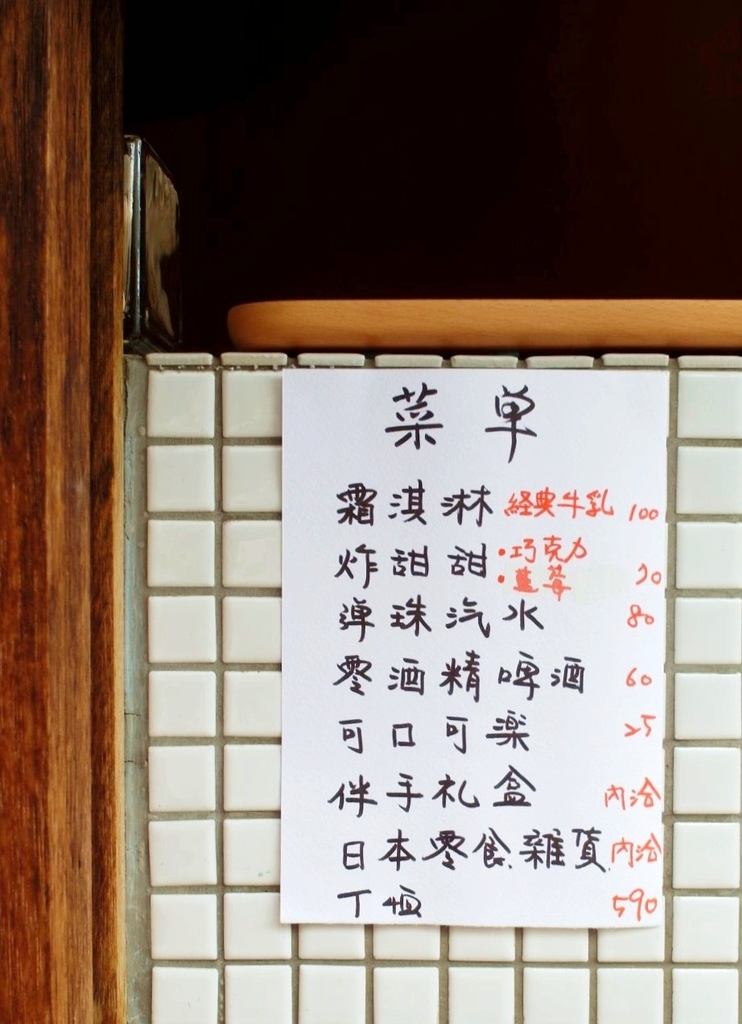 菜単
霜淇淋 経典牛乳 100
炸甜甜 ・巧克力
・藍莓 20
弾珠汽水 80
零酒精啤酒 60
可口可楽 25
伴手礼盒 內洽
日本零食雜貨 內洽
T恤 590